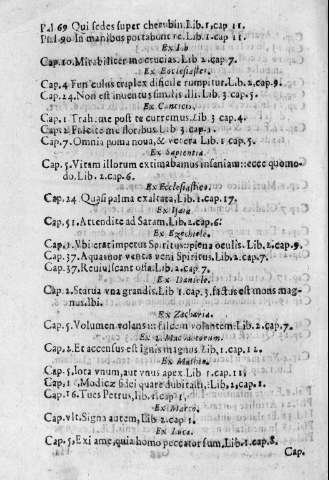 Psal 69 Qui sedes super cherubin. Lib. 1. cap 11.
Psal 90 In manibus portabunt te. Lib. 1. cap 11.
Ex Iob
Cap. 10. Mirabiliter me crucias. Lib 2. cap 7.
Ex Ecclesiaste.
Cap. 4 Funiculus triplex dificile rumpitur. Lib. 2. cap 9.
Cap. 24. Non est inuentus similis illi. Lib 3. cap 5.
Ex Canticis.
Cap. 1 Trahe me post te curremus. Lib 3 cap 4.
Cap. 2 Fulcite me floribus. Lib 3. cap 1.
Cap 7. Omnia poma noua, & vetera Lib 1 cap 5.
Ex Sapientia.
Cap. 5. Vitam illorum extimabamus insaniam: ecce quomo-
do. Lib 2. cap 6.
Ex Ecclesiastico.
Cap. 24 Quasi palma exaltata, Lib 1. cap 17.
Ex Isaia
Cap. 51. Attendite ad Saram, Lib 2. cap 6.
Ex Ezechiele.
Vbi erat impetus Spiritus: plena oculis. Lib. 2. cap 9.
Cap. 37. A quatuor ventis veni Spiritus, Lib 2. cap 7.
Cap. 37. Reuiuiscant ossa. Lib 2. cap 7.
Ex Daniele.
Cap. 2. Statua vna grandis. Lib 1. cap 3. fact. is est mons mag-
nus. Ibi.
Ex Zacharia.
Cap. 5. Volumen volans: falcem volantem. Lib. 2. cap 7.
Ex 2. Macabeorum.
Cap. 1. Et accensus est ignis magnus. Lib, 1. cap. 12.
Ex Matheo.
Cap. 5. Iota vnum, aut vnus apex Lib 1. cap 11.
Modicæ fidei quare dubitasti, Lib 2, cap 1.
Cap. 16. Tu es Petrus, lib. 1. cap 1,
Ex Marco.
Cap. vlt. Signa autem, Lib 2. cap 1.
Ex Luca.
Cap. 5, Exi a me, quia homo peccator sum, Lib. 1. cap 8.
Cap.